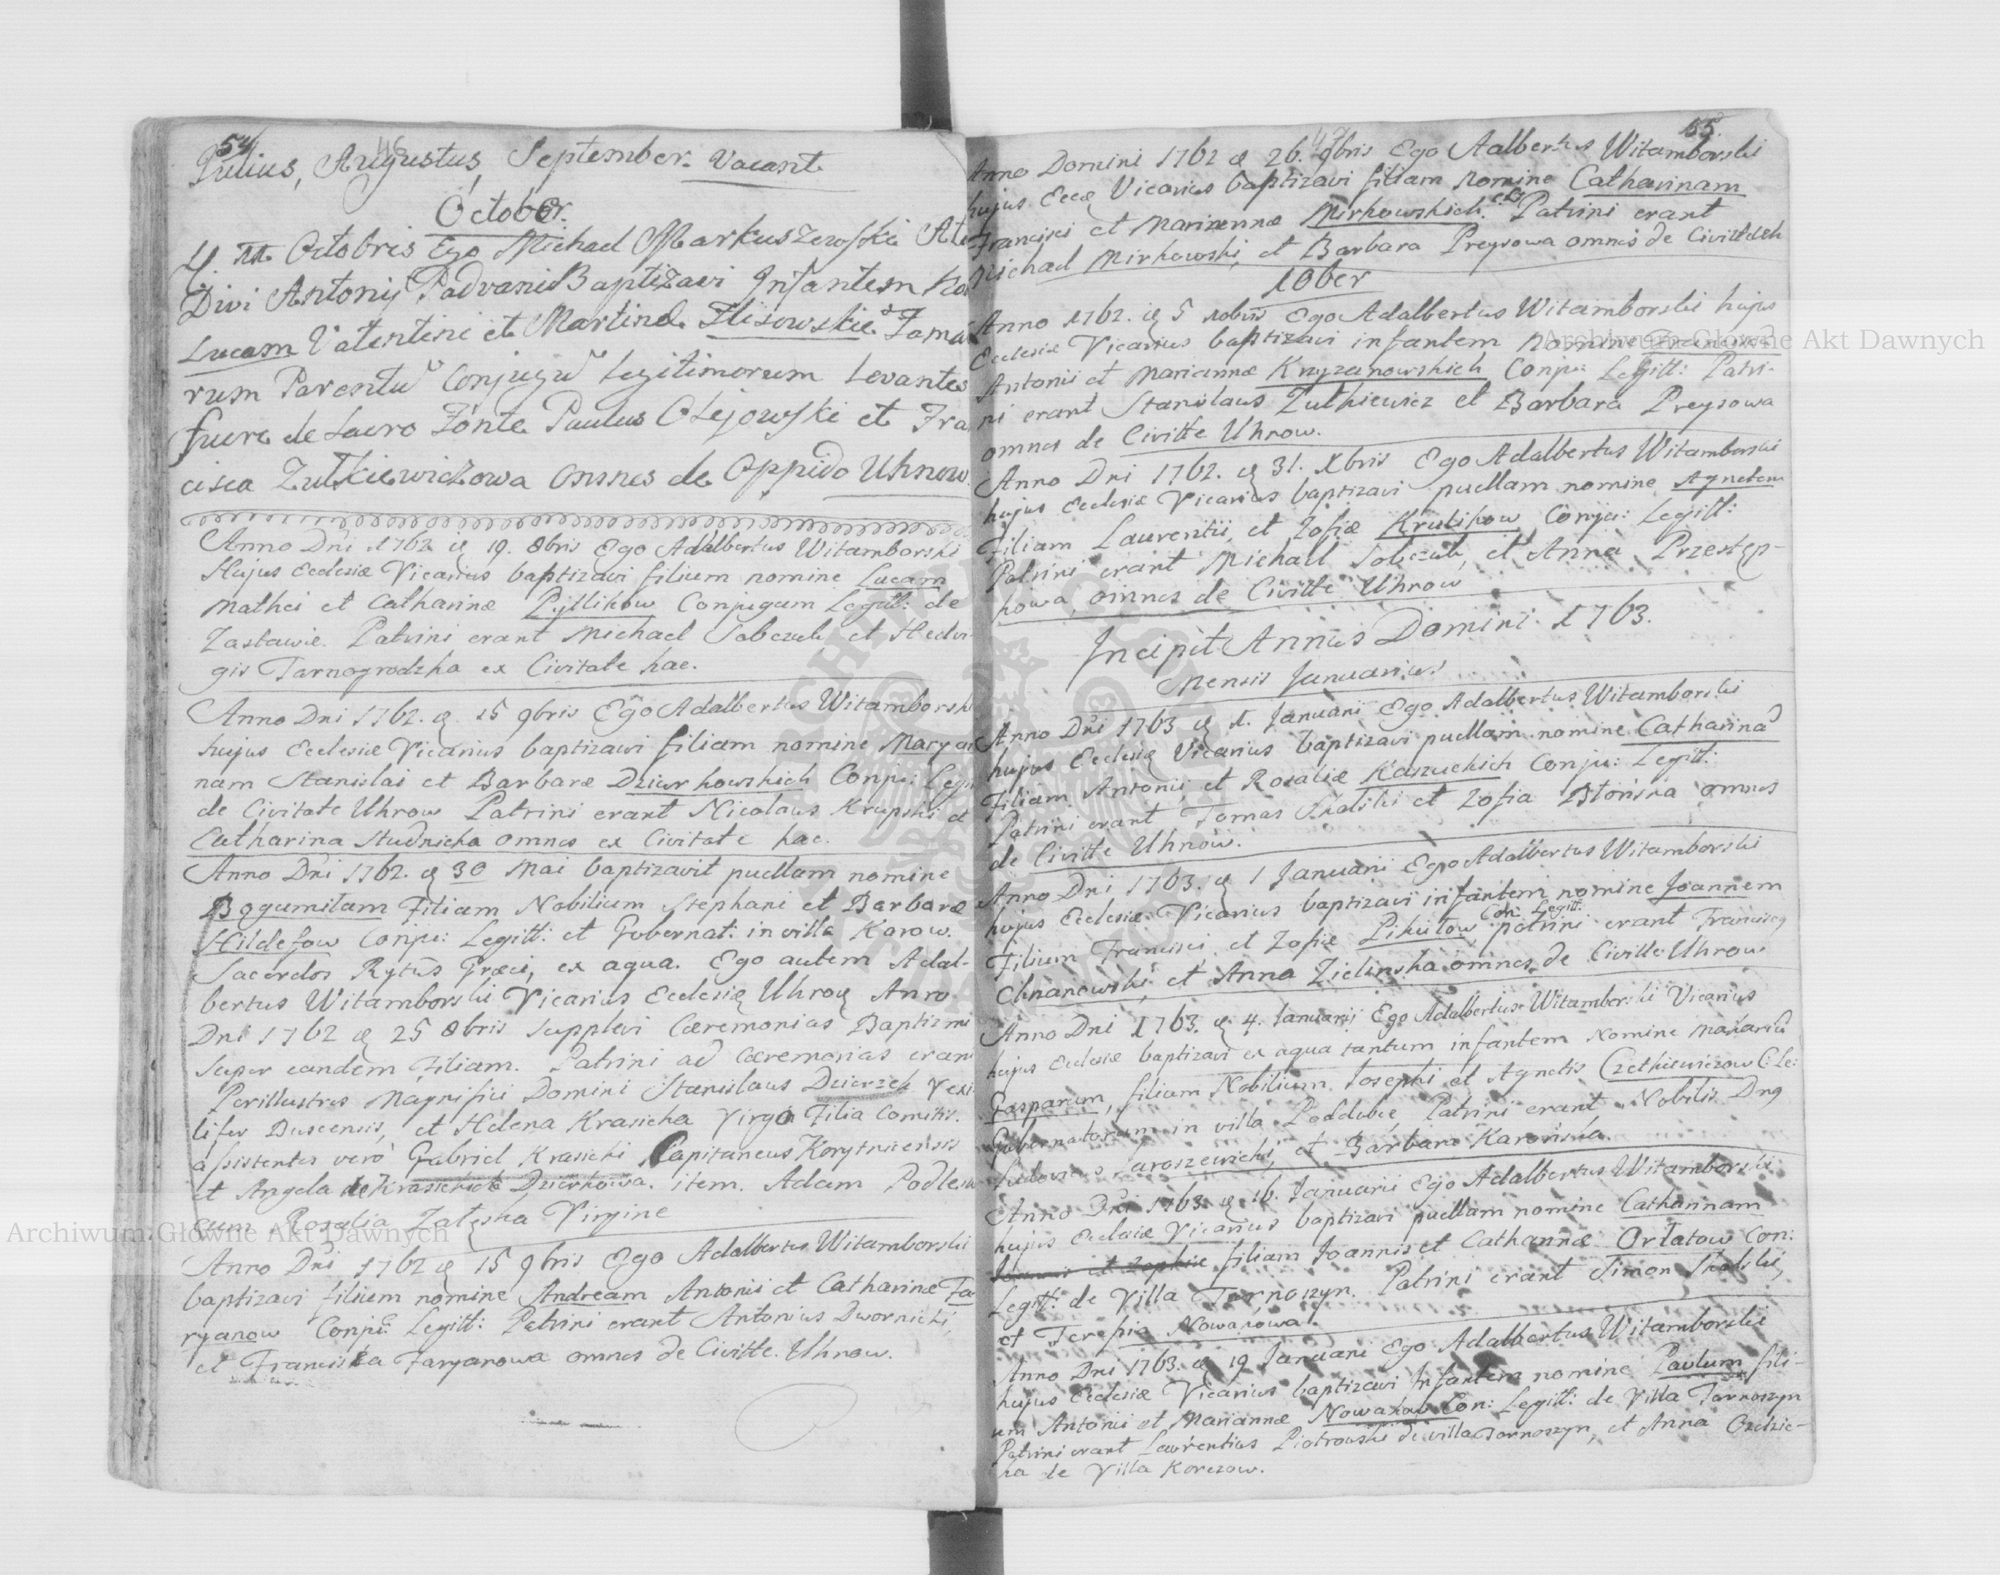 54
46
Julius, Augustus, September. Vacant
October.
Octobris Ego Michael Markuszewski
Divi Antonij Padvani Baptizavi Infantem
Lucam Valentini et Martinæ Flisowskie Fama
rum Parentũ Conjugũ Legitimorum Levantes
fuere de Sacro Fonte Paulus Olejowski et Fra
cisca Zulkiewiczowa Omnes de Oppido Uhnow.
Anno Dni 1762 19. 8bris Ego Adalbertus Witamborski
Hujus Ecclesiæ Vicarius baptizavi filium nomine Lucam
Mathei et Catharinæ Pyllikow Conjugum Legitt: de
Zastawie. Patrini erant Michael Sobczuk, et Hedvi-
gis Tarnogrodzka ex Civitate hac.
Anno Dni 1762. 15 9bris Ego Adalbertus Witamborski
hujus Ecclesiæ Vicarius baptizavi filiam nomine Maryan
nam Stanislai et Barbaræ Dziurkowskich Conju: Legi
de Civitate Uhnow Patrini erant Nicolaus Krupski et
Catharina Studnicka omnes ex Civitate hac.
Anno Dni 1762. 30 Mai baptizavit puellam nomine
Bogumilam Filiam Nobilium Stephani et Barbaræ
Hildefow Conju: Legitt: et Gubernat: in villa Karow.
Sacerdos Rytũs Græci, ex aqua. Ego autem Adal-
bertus Witamborski Vicarius Ecclesię Uhnow Anno
Dni 1762 25 8bris supplevi Cæremonias Baptizmi
super eandem Filiam. Patrini ad Cæremonias erant
Perillustres Magnifici Domini Stanislaus Dzierzek Vexi
lifer Buscensis, et Helena Krasicka Virgo Filia Comitis.
assistentes verò Gabriel Krasicki Capitaneus Korytnicensis
et Angela de Krasickich Dzierkowa. item. Adam Podlesk
cum Rosalia Zaleska Virgine
Anno Dni 1762 15 9bris Ego Adalbertus Witamborski
baptizavi filium nomine Andream Antonii et Catharinæ Fa
ryanow Conju: Legitt: Patrini erant Antonius Dwornicki,
et Franciska Faryanowa omnes de Civitte. Uhnow.
55.
Anno Domini 1762 26. 9bris Ego Aalbertus Witamborski
hujus Eccæ Vicarius baptizavi filiam nomine Catharinam
Francisci et Mariannæ Mirkowskich. Patrini erant
Michael Mirkowski, et Barbara Preysowa omnes de Civitt
10ber
Anno 1762. 5 10bris Ego Adalbertus Witamborski hujus
Ecclesiæ Vicarius baptizavi infantem nomine
Antonii et Mariannæ Krzyzanowskich Conju: Legitt: Patri-
ni erant Stanislaus Zulkiewicz et Barbara Preysowa
omnes de Civitte Uhnow.
Anno Dni 1762. 31. Xbris Ego Adalbertus Witamborski
hujus Ecclesiæ Vicarius baptizavi puellam nomine Agnetem
Filiam Laurentii, et Zofiæ Krulikow, Conju: Legitt:
Patrini erant Michael Sobczuk, et Anna Przestęp-
kowa, omnes de Civitte Uhnow
Incipit Annus Domini 1763.
Mensis Januarius.
Anno Dni 1763 1. Januarii Ego Adalbertus Witamborski
hujus Ecclesiæ Vicarius baptizavi puellam nomine Catharinã
Filiam Antonii, et Rosaliæ Kaszuckich Conju: Legitt:
Patrini erant Tomas Skalski et Zofia Błońska omnes
de Civitte Uhnow.
Anno Dni 1763. 1 Januarii Ego Adalbertus Witamborski
hujus Ecclesiæ Vicarius baptizavi infantem nomine Joannem
Filium Francisci, et Zofiæ Pikulow Con: Legitt: patrini erant Franciscus
Chnanowski, et Anna Zielinska omnes de Civitte Uhnow
Anno Dni 1763. 4. Januarii Ego Adalbertus Witamborski Vicarius
hujus Ecclesiæ baptizavi ex aqua tantum infantem Nomine
Gasparum, filium Nobilium Josephi et Agnetis Czetkiewiczow C: Le:
Gubernatorum in villa Poddubce Patrini erant Nobilis Dnę
Ludovicus Jaroszewicki, et Barbara Karońska.
Anno Dni 1763 16. Januarii Ego Adalbertus Witamborski
hujus Ecclesiæ Vicarius baptizavi puellam nomine Catharinam
filiam Joannis et Catharinæ Orlatow Con:
Legitt: de Villa Tarnoszyn. Patrini erant Simon Skalski,
et Teresia Nowakowa.
Anno Dni 1763. 19 Januarii Ego Adalbertus Witamborski
hujus Ecclesiæ Vicarius baptizavi Infantem nomine Paulum fili-
um Antonii et Mariannæ Nowakow Con: Legitt: de Villa Tarnoszyn
Patrini erant Laurentius Piotrowski de villa Tarnoszyn, et Anna
ka de Villa Korczow.
Archiwum Główne Akt Dawnych
Archiwum Główne Akt Dawnych